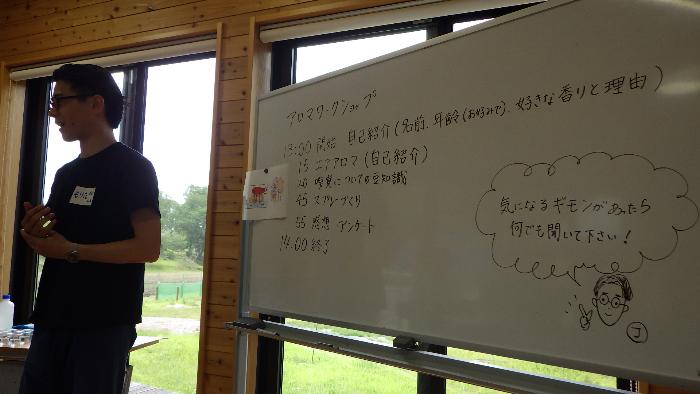 アロマワークショップ
13:00 開始 自己紹介(名前、年齢(お好みで)、好きな香りと理由)
15 エアアロマ(自己紹介)
嗅覚についての豆知識
45 スプレーづくり
55 感想 アンケート
14:00 終了
気になるギモンがあったら
何でも聞いて下さい!